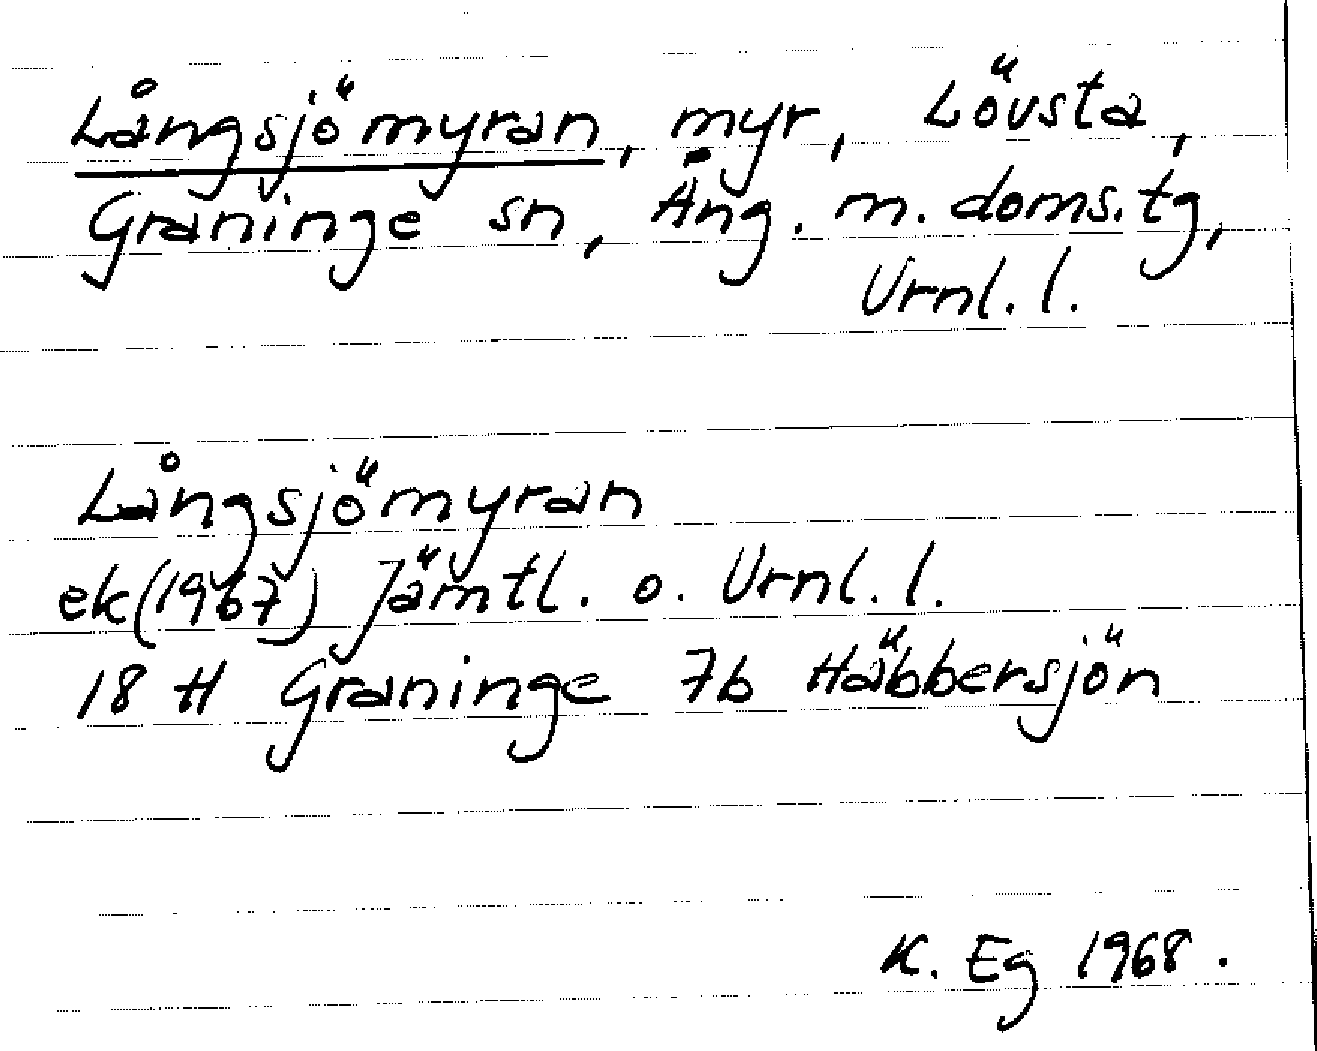 Långsjömyran, myr, Lövsta,
Graninge sn, Ång. m. doms. tg,
Vrnl. l.
Långsjömyran
ek (1967) Jämtl. o. Vrnl. l.
18 H Graninge 7b Häbbersjön
K. Eg 1968.